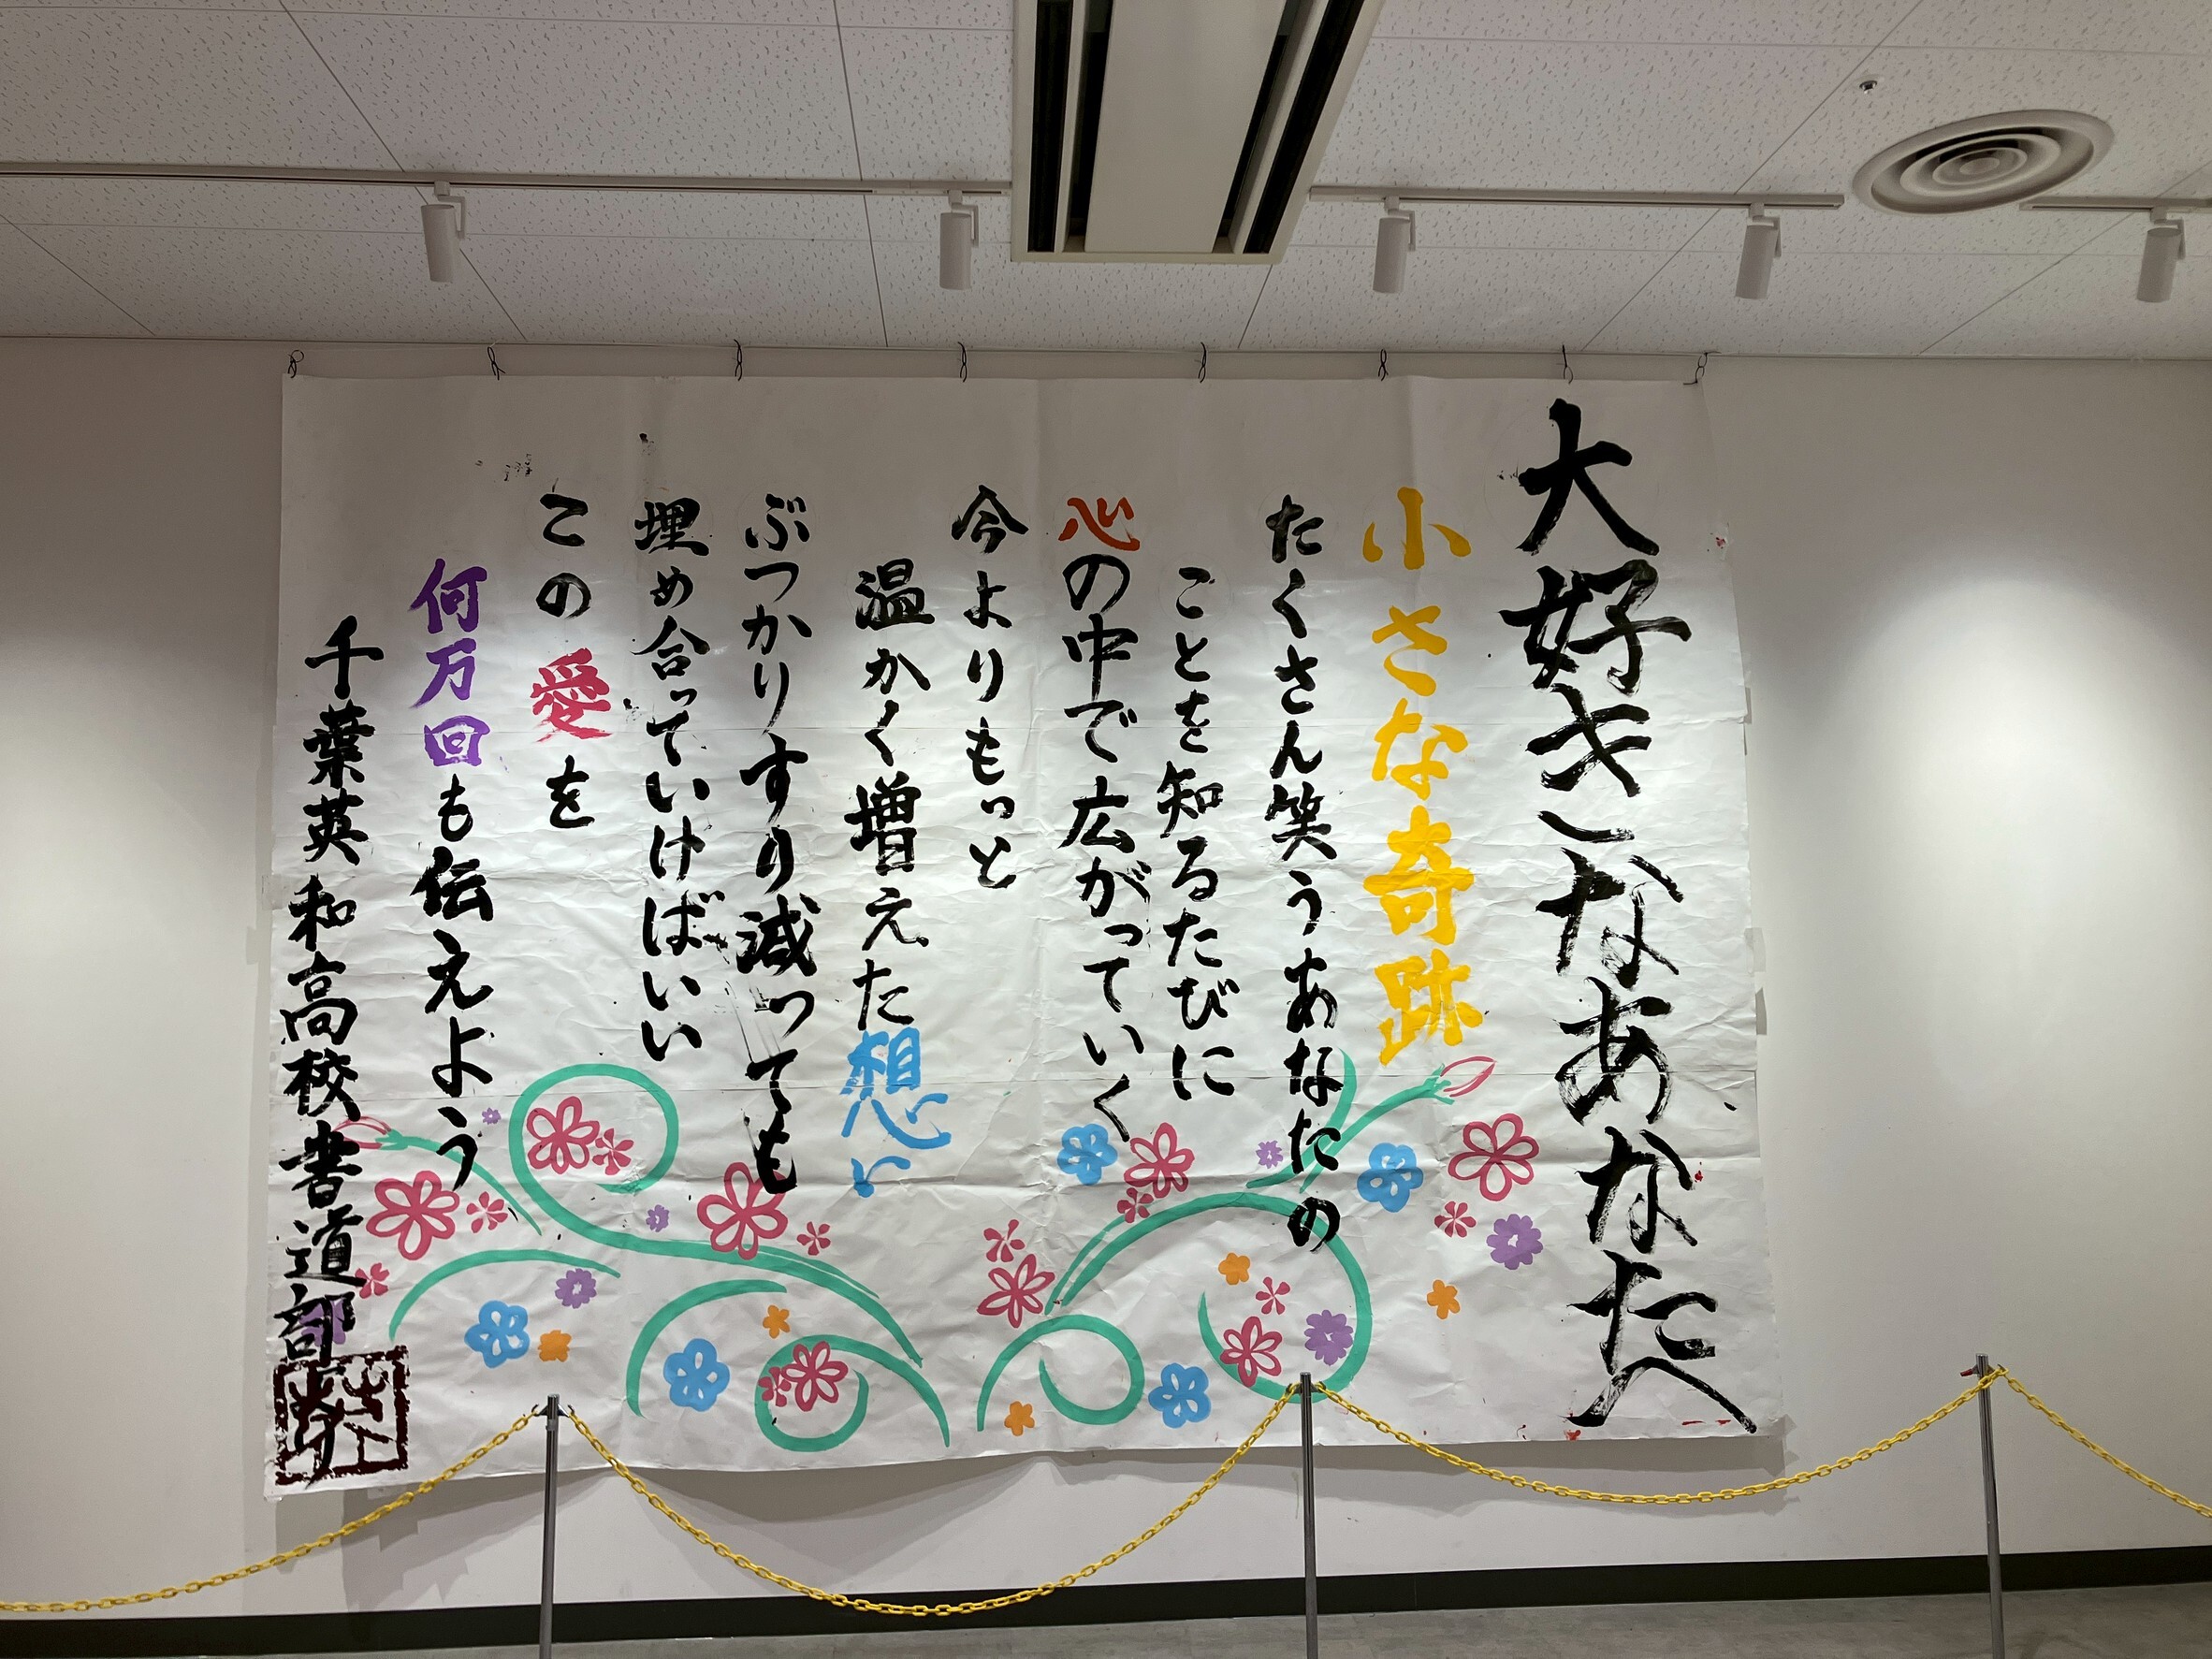 大好きなあなたへ
小さな奇跡
たくさん笑うあなたの
ことを知るたびに
心の中で広がっていく
今よりもっと
温かく増えた想い
ぶつかりすり減っても
埋め合っていけばいい
この愛を
何万回も伝えよう
千葉英和高校書道部